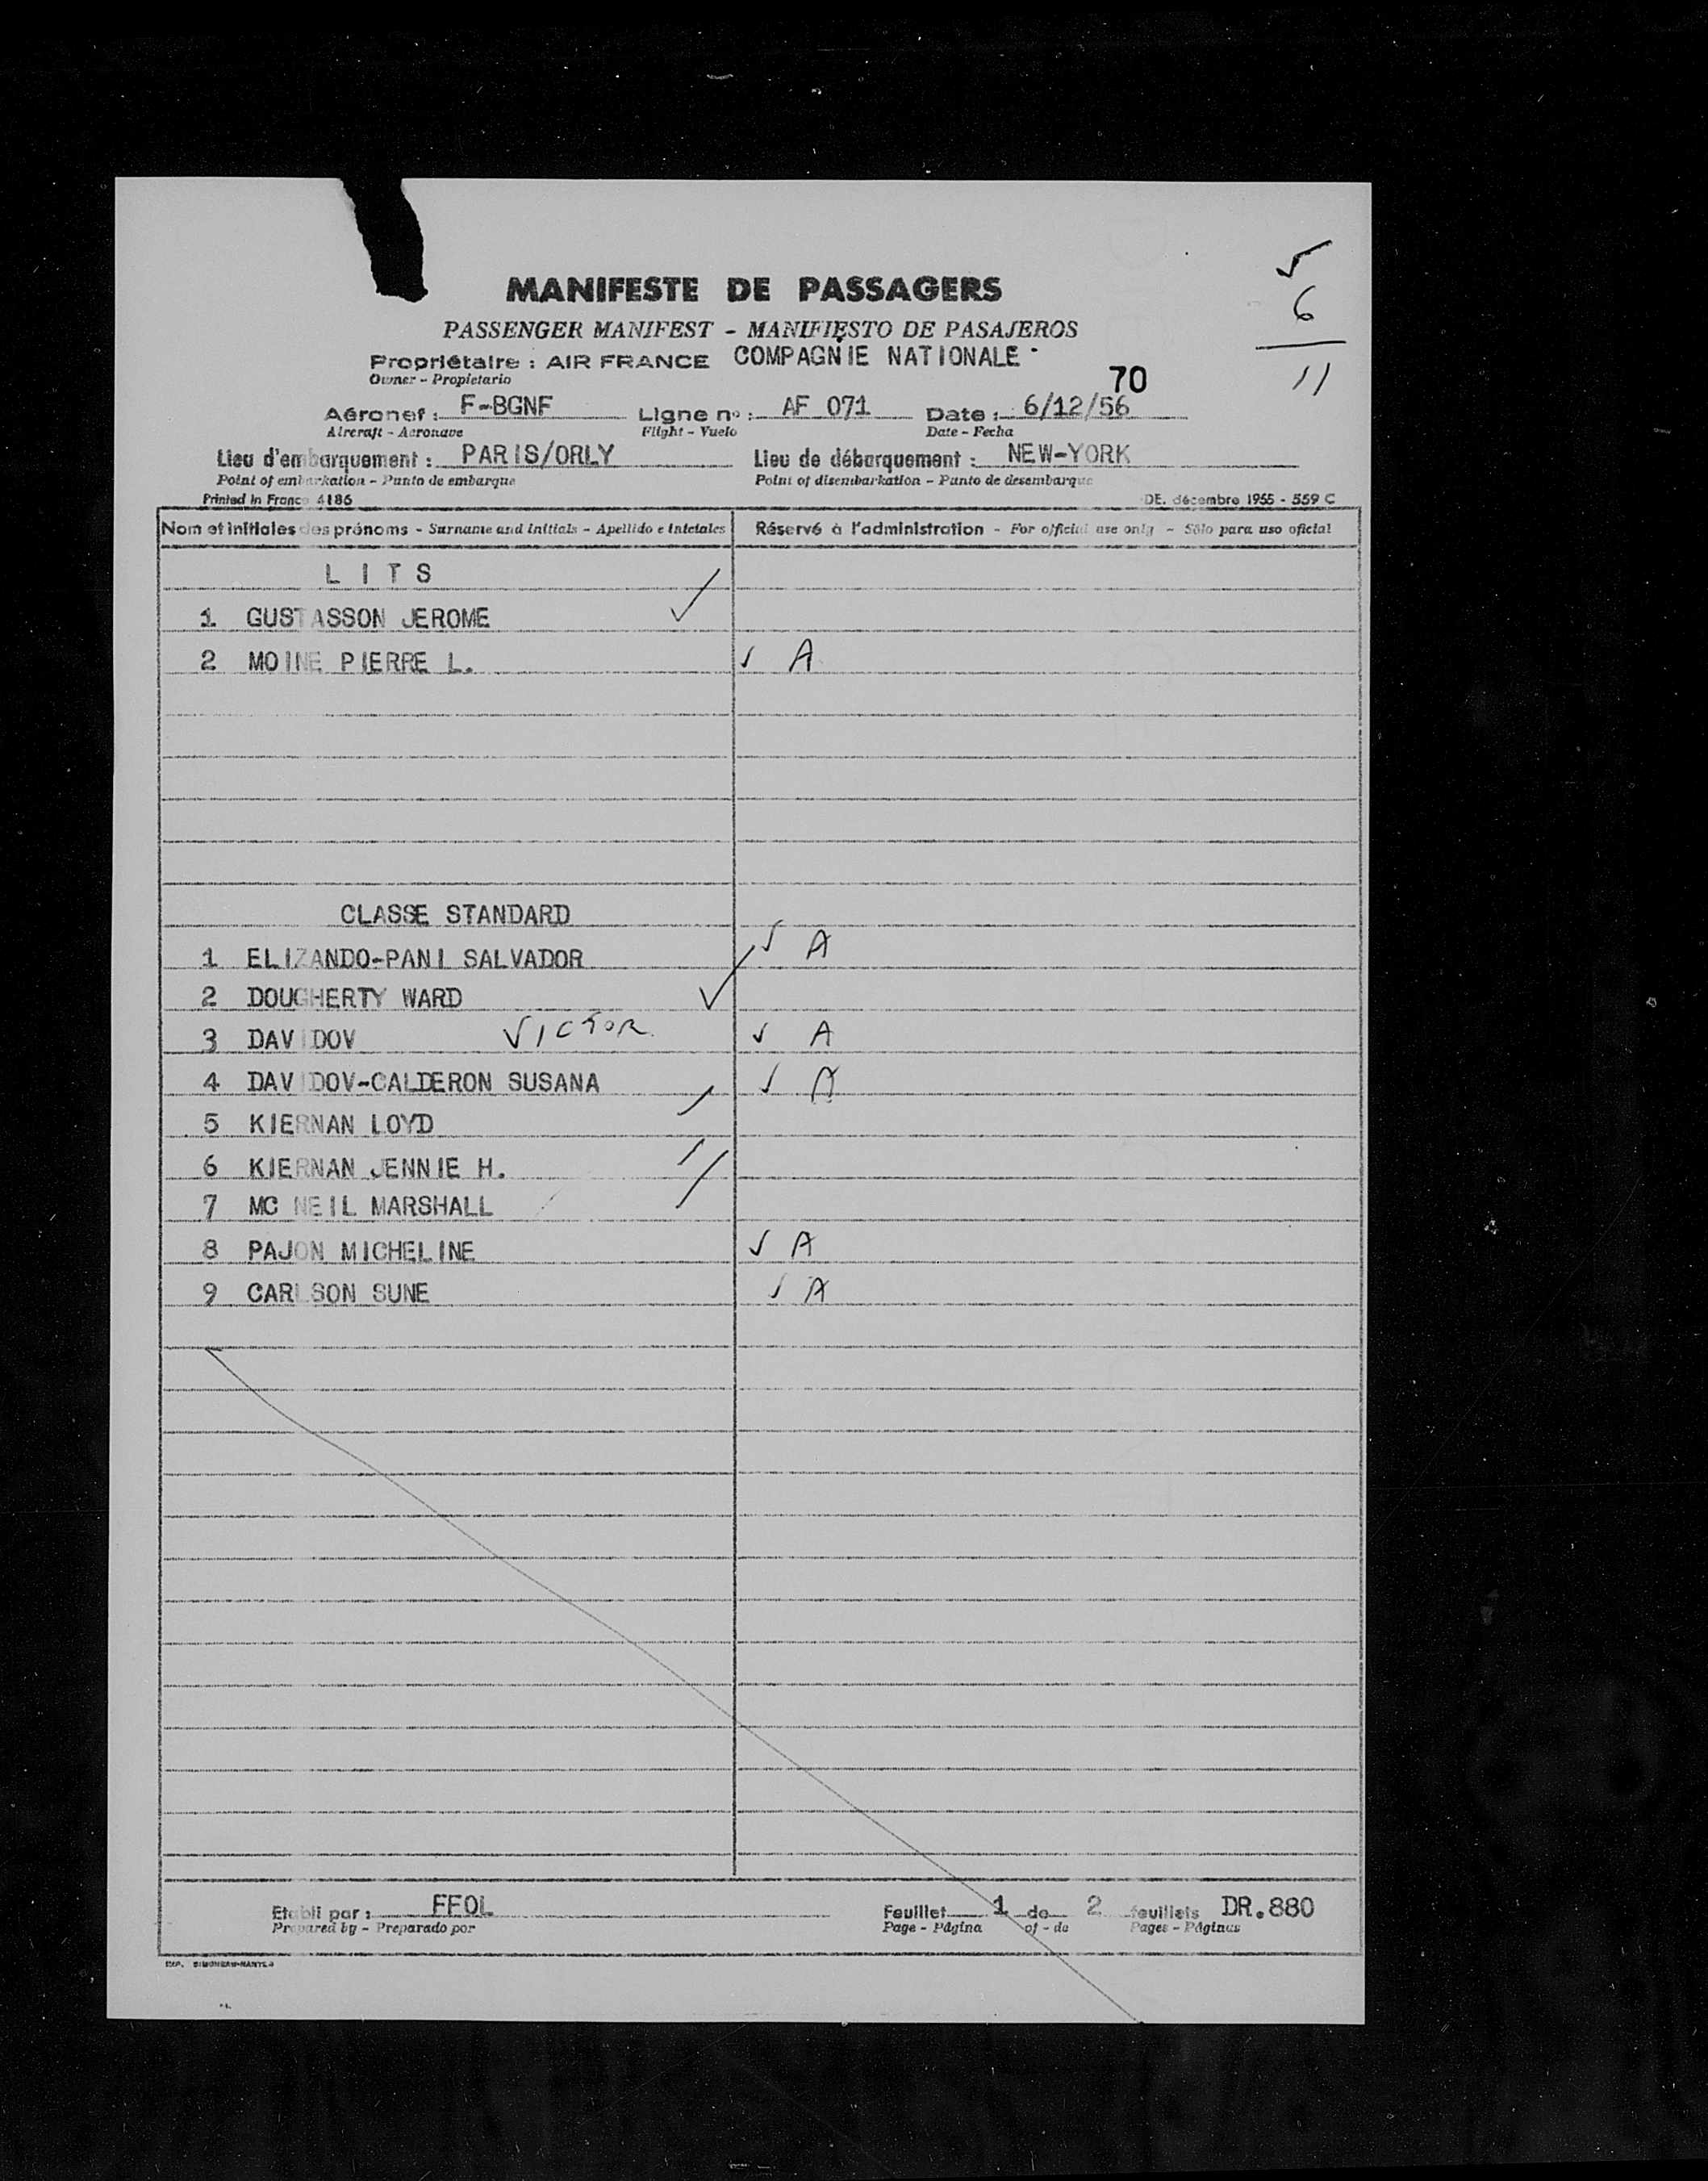 5
6
11
MANIFESTE DE PASSAGERS
PASSENGER MANIFEST - MANIFIESTO DE PASAJEROS
Propriétaire : AIR FRANCE COMPAGNIE NATIONALE
Owner - Propietario
70
Aéronef : F-BGNF Ligne nº : AF 071 Date : 6/12/56
Aircraft - Aeronave Flight - Vuelo Date - Fecha
Lieu d'embarquement : PARIS/ORLY Lieu de débarquement : NEW-YORK
Point of embarkation - Punto de embarque Point of disembarkation - Punto de desembarque
Printed in France 4186 DE. décembre 1955 - 559 C
Nom et initiales des prénoms - Surname and initials - Apellido e iniciales Réservé à l'administration - For official use only - Sólo para uso oficial
LITS
1 GUSTASSON JEROME ✓
2 MOINE PIERRE L. ✓ A
CLASSE STANDARD
1 ELIZANDO-PANI SALVADOR ✓ A
2 DOUGHERTY WARD ✓
3 DAVIDOV VICTOR ✓ A
4 DAVIDOV-CALDERON SUSANA ✓ A
5 KIERNAN LOYD
6 KIERNAN JENNIE H.
7 MC NEIL MARSHALL
8 PAJON MICHELINE ✓ A
9 CARLSON SUNE ✓ A
Etabli par : FFOL Feuillet 1 de 2 feuillets DR.880
Prepared by - Preparado por Page - Página of - de Pages - Páginas
IMP. SIMONEAU-NANTES